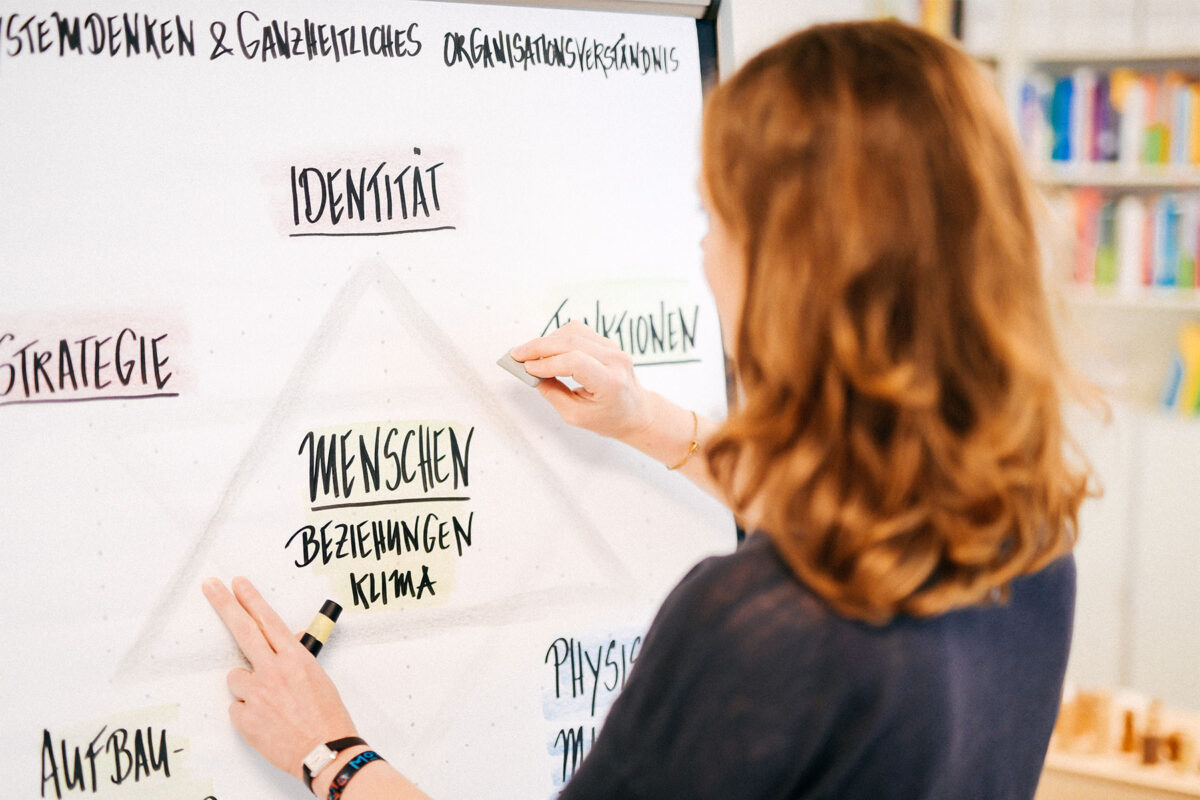 YSTEMDENKEN & GANZHEITLICHES ORGANISATIONSVERSTÄNDNIS
IDENTITÄT
FUNKTIONEN
STRATEGIE
MENSCHEN
BEZIEHUNGEN
KLIMA
PHYSIS
AUFBAU-